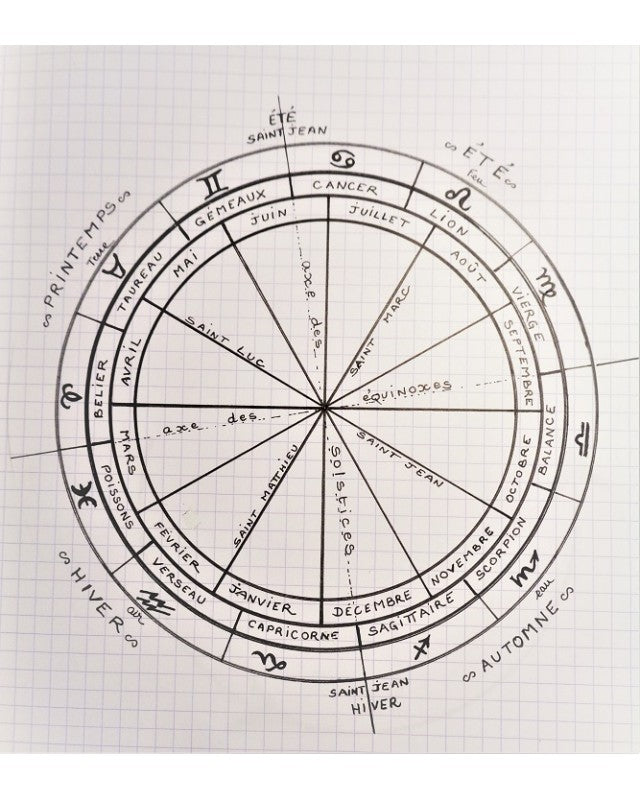 ÉTÉ
SAINT JEAN
∽ ÉTÉ ∽
Feu
∽ PRINTEMPS ∽
Terre
∽ HIVER ∽
air
∽ AUTOMNE ∽
eau
SAINT JEAN
HIVER
♋
♌
♍
♎
♏
♐
♑
♒
♓
♈
♉
♊
CANCER
LION
VIERGE
BALANCE
SCORPION
SAGITTAIRE
CAPRICORNE
VERSEAU
POISSONS
BELIER
TAUREAU
GEMEAUX
JUIN
JUILLET
AOÛT
SEPTEMBRE
OCTOBRE
NOVEMBRE
DÉCEMBRE
JANVIER
FEVRIER
MARS
AVRIL
MAI
axe des
solstices
axe des
équinoxes
SAINT LUC
SAINT MARC
SAINT JEAN
SAINT MATTHIEU